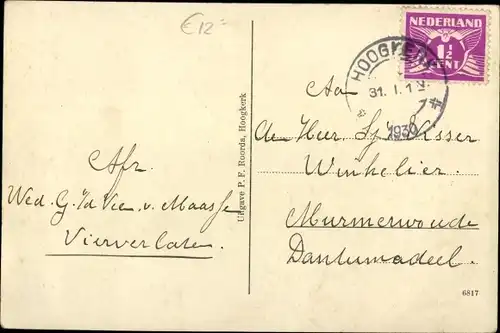 €12=
NEDERLAND
1½
CENT
HOOGKERK
31. 1. 1 V.
1930
Aan
den Heer Sj. Visser
Winkelier.
Murmerwoude
Dantumadeel.
Afz.
Wed. G. v/d Veen v. Maasse
Vierverlaten.
Uitgave P. F. Roorda, Hoogkerk
6817